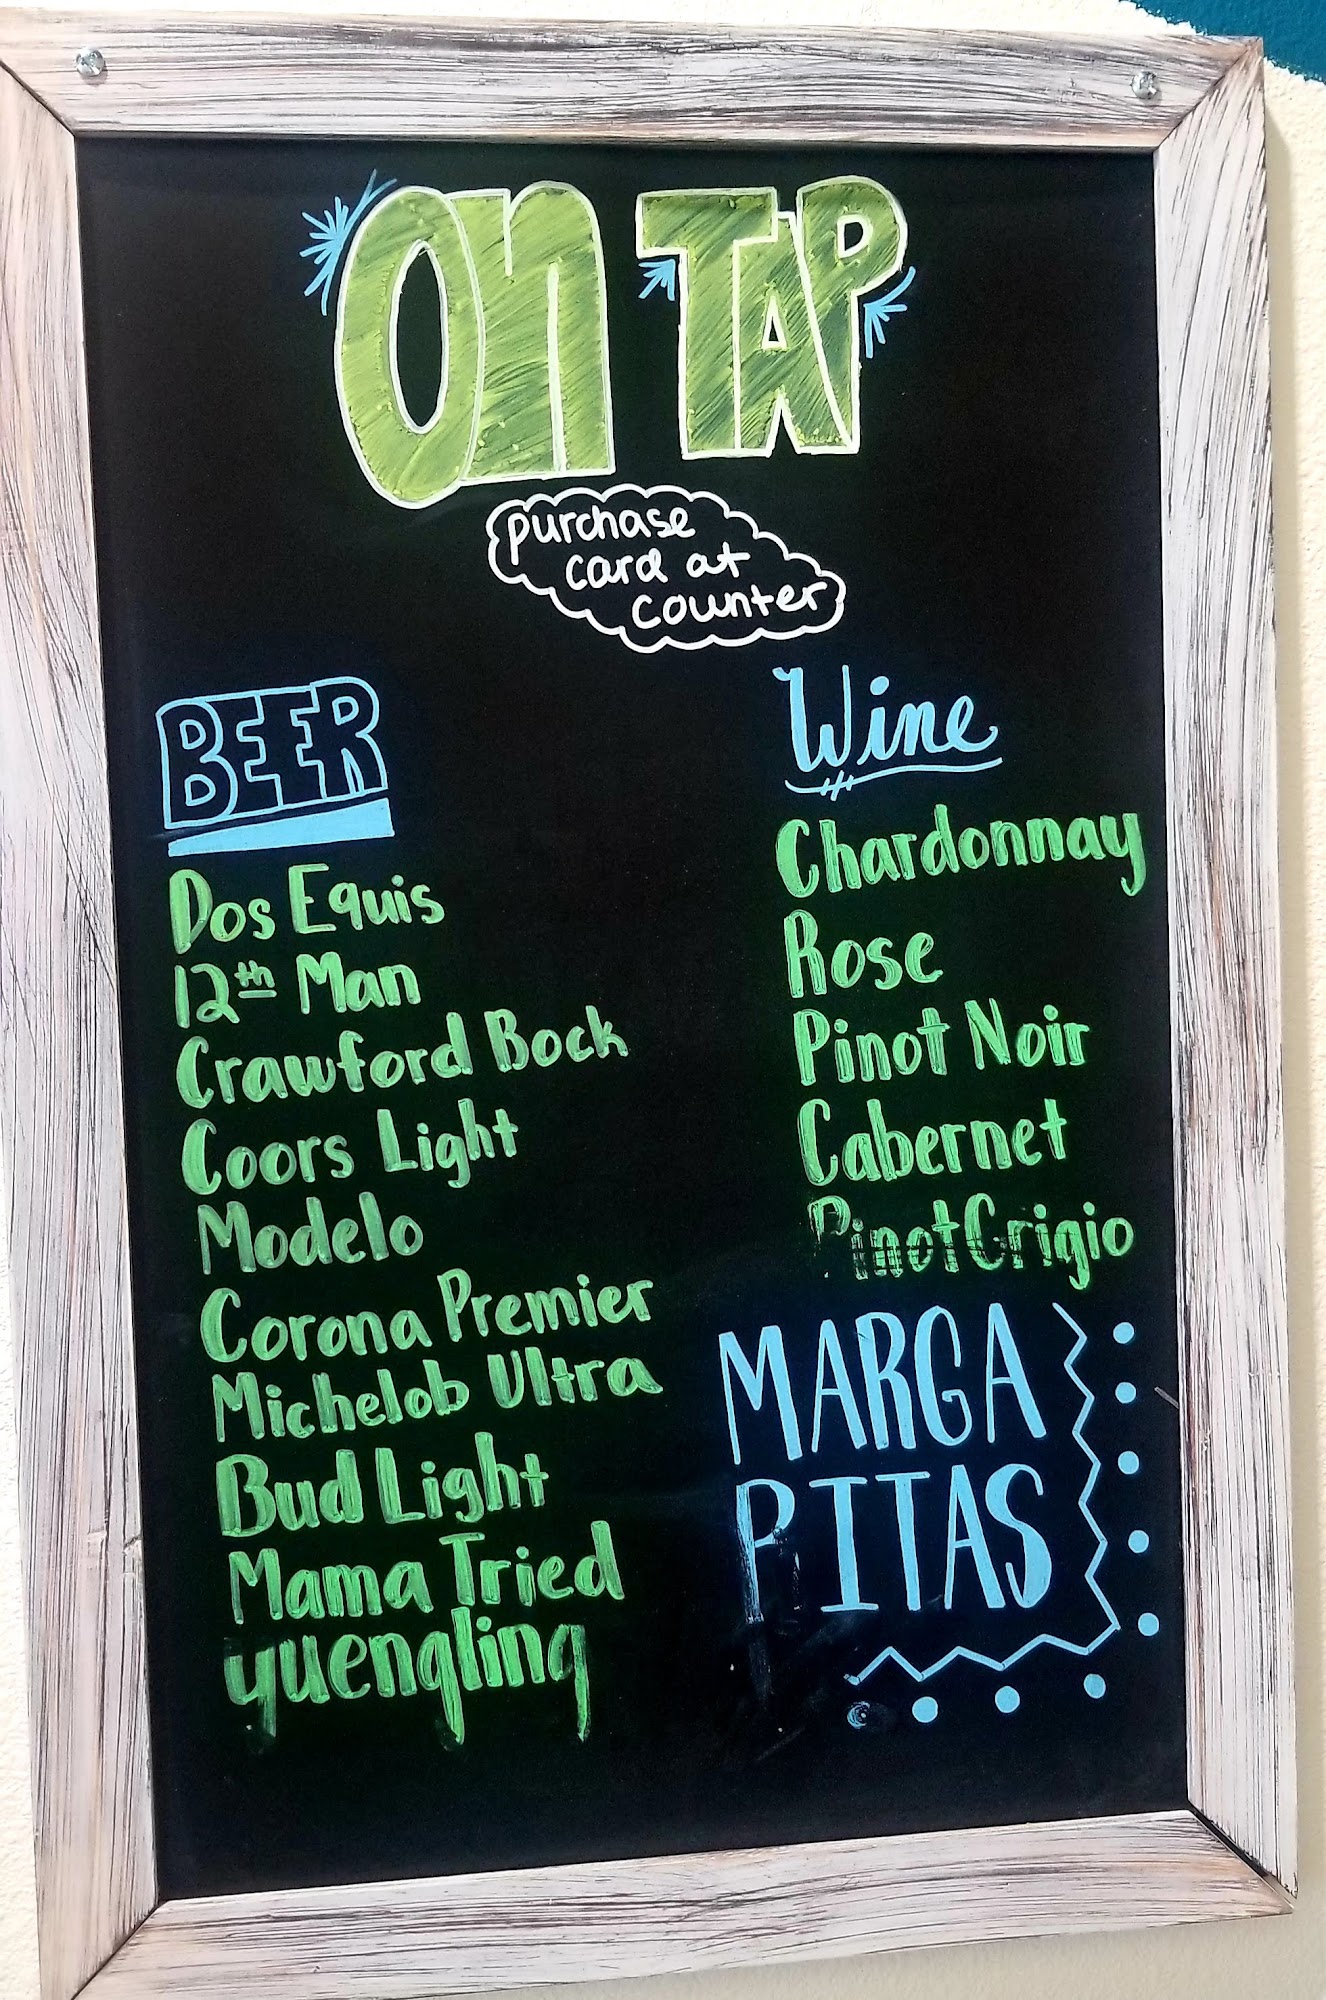 On TAP
purchase
card at
counter
BEER
Dos Equis
12th Man
Crawford Bock
Coors Light
Modelo
Corona Premier
Michelob Ultra
Bud Light
Mama Tried
yuengling
Wine
Chardonnay
Rose
Pinot Noir
Cabernet
Pinot Grigio
MARGA
PITAS